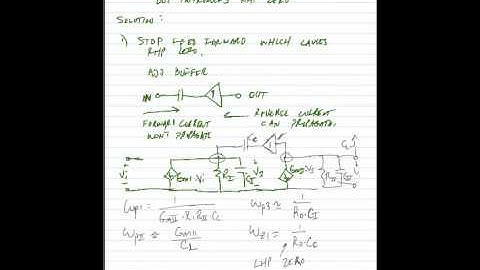 BUT INTRODUCES RHP ZERO
SOLUTION:
i) STOP FEED FORWARD WHICH CAUSES
RHP ZERO.
ADD BUFFER
IN
1
OUT
FORWARD CURRENT
WON'T PROPAGATE
REVERSE CURRENT
CAN PROPAGATE.
Cc
1
Vi
GmI·Vi
RI
CI
V2
GmII·V2
RII
CII
ωp1 = 1/(GmII·RI·RII·Cc)
ωp3 ≈ 1/(Ro·CI)
ωpII ≈ GmII/CL
ωZ1 = 1/(Ro·Cc)
LHP ZERO